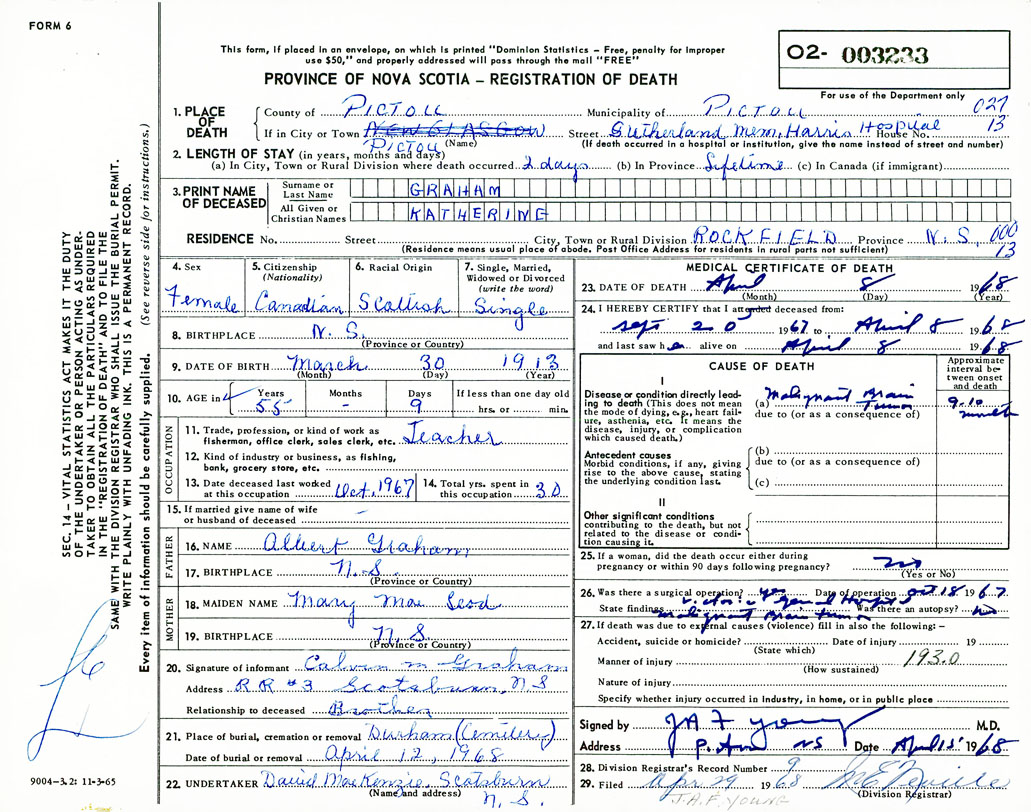 FORM 6
This form, if placed in an envelope, on which is printed "Dominion Statistics – Free, penalty for improper
use $50," and properly addressed will pass through the mail "FREE"
PROVINCE OF NOVA SCOTIA – REGISTRATION OF DEATH
O2- 003233
For use of the Department only
027
13
SEC. 14 – VITAL STATISTICS ACT MAKES IT THE DUTY
OF THE UNDERTAKER OR PERSON ACTING AS UNDER-
TAKER TO OBTAIN ALL THE PARTICULARS REQUIRED
IN THE "REGISTRATION OF DEATH" AND TO FILE THE
SAME WITH THE DIVISION REGISTRAR WHO SHALL ISSUE THE BURIAL PERMIT.
WRITE PLAINLY WITH UNFADING INK. THIS IS A PERMANENT RECORD.
Every item of information should be carefully supplied. (See reverse side for instructions.)
1. PLACE OF DEATH
County of PICTOU Municipality of PICTOU
If in City or Town NEW GLASGOW Street Sutherland Mem. Harris Hospital House No.
PICTOU (Name) (If death occurred in a hospital or institution, give the name instead of street and number)
2. LENGTH OF STAY (in years, months and days)
(a) In City, Town or Rural Division where death occurred 2 days (b) In Province Lifetime (c) In Canada (if immigrant)
3. PRINT NAME OF DECEASED
Surname or Last Name GRAHAM
All Given or Christian Names KATHERINE
RESIDENCE No. Street City, Town or Rural Division ROCKFIELD Province N.S. 000
(Residence means usual place of abode. Post Office Address for residents in rural parts not sufficient) 13
4. Sex Female
5. Citizenship (Nationality) Canadian
6. Racial Origin Scottish
7. Single, Married, Widowed or Divorced (write the word) Single
8. BIRTHPLACE N.S.
(Province or Country)
9. DATE OF BIRTH March 30 1913
(Month) (Day) (Year)
10. AGE in Years 55 Months - Days 9 If less than one day old hrs. or min.
OCCUPATION
11. Trade, profession, or kind of work as
fisherman, office clerk, sales clerk, etc. Teacher
12. Kind of industry or business, as fishing,
bank, grocery store, etc.
13. Date deceased last worked at this occupation Oct, 1967
14. Total yrs. spent in this occupation 30
15. If married give name of wife
or husband of deceased -
FATHER
16. NAME Albert Graham
17. BIRTHPLACE N.S.
(Province or Country)
MOTHER
18. MAIDEN NAME Mary Mac Leod
19. BIRTHPLACE N.S.
(Province or Country)
20. Signature of informant Calvin M Graham
Address RR #3 Scotsburn, N.S
Relationship to deceased Brother
21. Place of burial, cremation or removal Durham (Cemetery)
Date of burial or removal April 12, 1968
22. UNDERTAKER David MacKenzie, Scotsburn
(Name and address) N.S.
MEDICAL CERTIFICATE OF DEATH
23. DATE OF DEATH April 8 1968
(Month) (Day) (Year)
24. I HEREBY CERTIFY that I attended deceased from:
Sept 20 1967 to April 8 1968
and last saw her alive on April 8 1968
CAUSE OF DEATH
Approximate interval between onset and death
I
Disease or condition directly leading to death (This does not mean
the mode of dying, e.g., heart failure, asthenia, etc. It means the
disease, injury, or complication
which caused death.)
(a) Malignant Brain Tumor
due to (or as a consequence of)
9-10 months
Antecedent causes
Morbid conditions, if any, giving
rise to the above cause, stating
the underlying condition last.
(b)
due to (or as a consequence of)
(c)
II
Other significant conditions
contributing to the death, but not
related to the disease or condi-
tion causing it.
25. If a woman, did the death occur either during
pregnancy or within 90 days following pregnancy? no
(Yes or No)
26. Was there a surgical operation? yes Date of operation Oct 18 1967
Victoria General Hospital
State findings malignant Brain tumor Was there an autopsy? no
27. If death was due to external causes (violence) fill in also the following: –
Accident, suicide or homicide? Date of injury 19
(State which)
Manner of injury 193.0
(How sustained)
Nature of injury
Specify whether injury occurred in industry, in home, or in public place
Signed by JAF Young M.D.
Address NS Date April 1968
28. Division Registrar's Record Number 9
29. Filed Apr 29 1968
(Division Registrar)
J.A.F. YOUNG
9004-3.2: 11-3-65